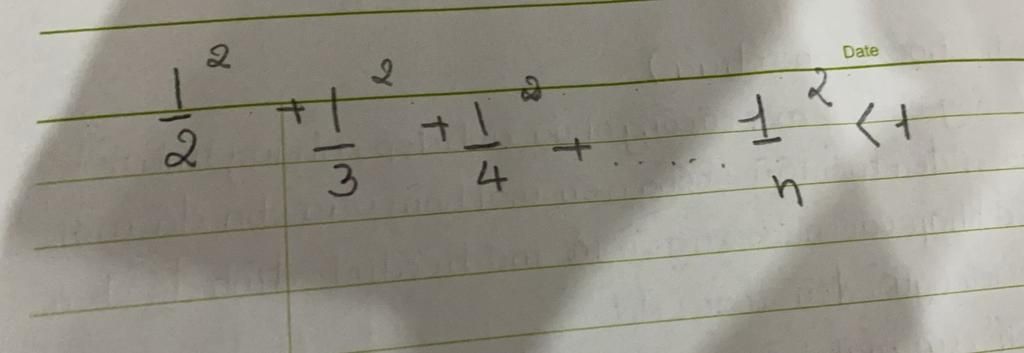 Date
1/2² + 1/3² + 1/4² + ...... 1/n² < 1